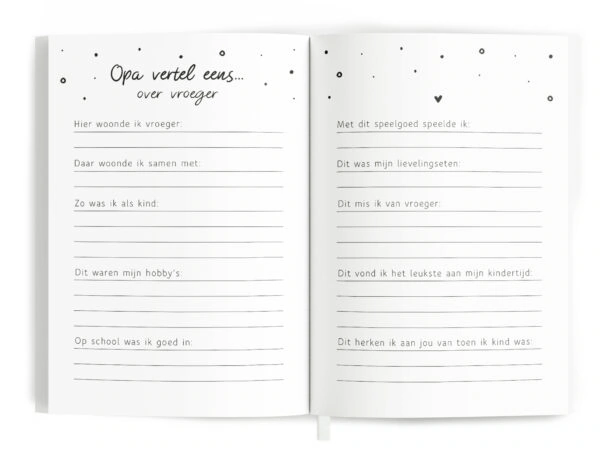 Opa vertel eens...
over vroeger
Hier woonde ik vroeger:
Daar woonde ik samen met:
Zo was ik als kind:
Dit waren mijn hobby's:
Op school was ik goed in:
Met dit speelgoed speelde ik:
Dit was mijn lievelingseten:
Dit mis ik van vroeger:
Dit vond ik het leukste aan mijn kindertijd:
Dit herken ik aan jou van toen ik kind was: